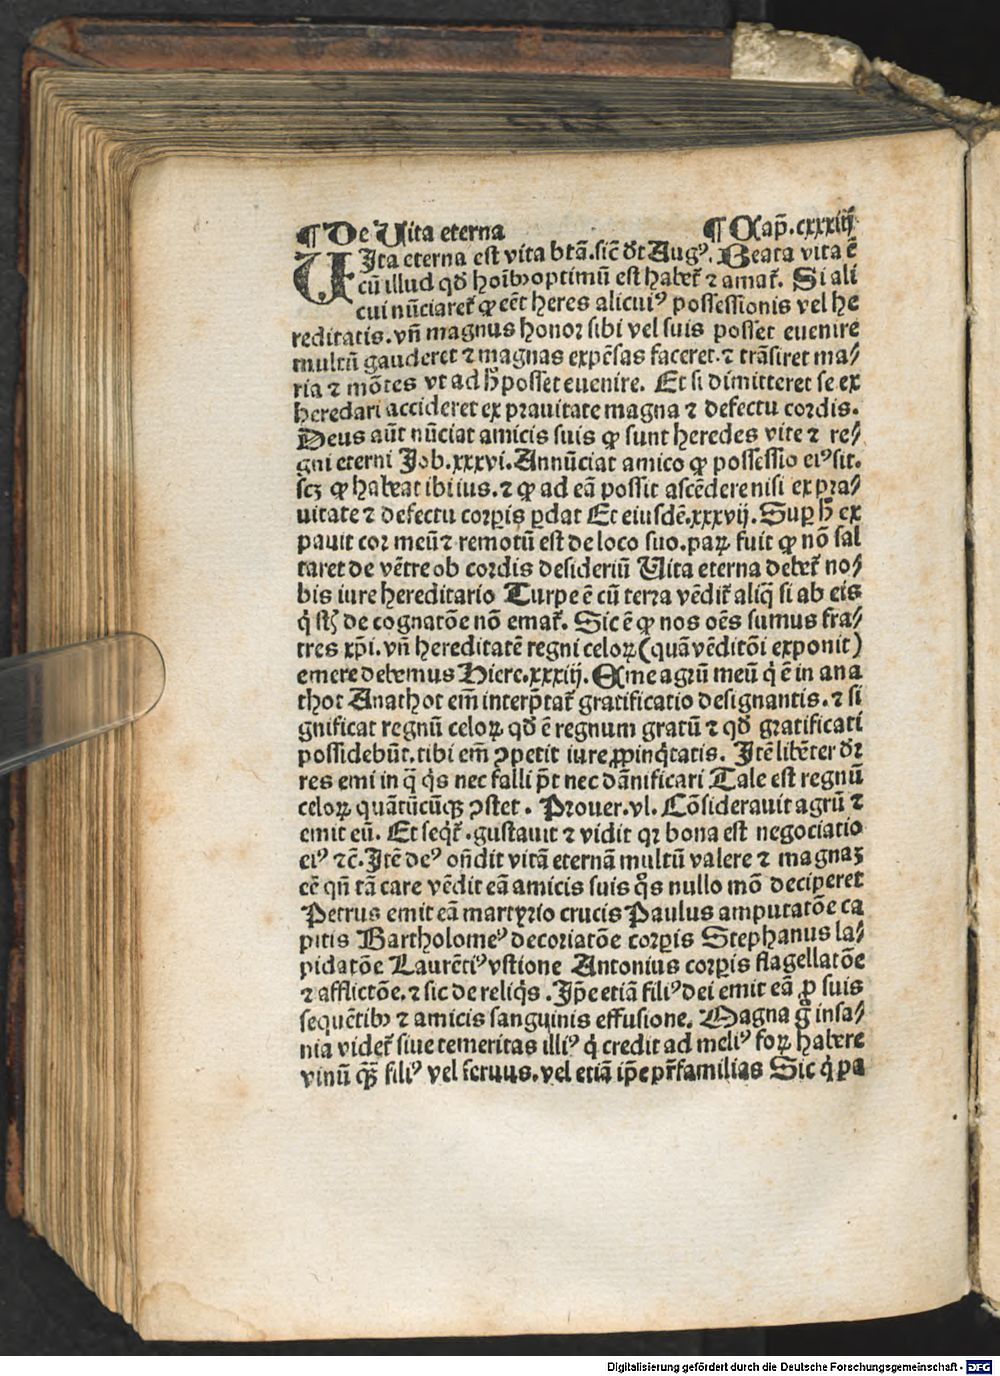 ¶ De Uita eterna ¶ Cap̄. cxxxiiij
UIta eterna est vita btā. sic̄ dt Augꝰ. Beata vita ē
cū illud qd hoībꝫ optimū est habet᷑ ⁊ amat᷑. Si ali
cui nūciaret᷑ ꝙ eēt heres alicuiꝰ possessionis vel he
reditatis. vn̄ magnus honor sibi vel suis posset euenire
multū gauderet ⁊ magnas expēsas faceret. ⁊ trāsiret ma⸗
ria ⁊ mōtes vt ad h̄ posset euenire. Et si dimitteret se ex
heredari accideret ex prauitate magna ⁊ defectu cordis.
Deus aūt nūciat amicis suis ꝙ sunt heredes vite ⁊ re⸗
gni eterni Job. xxxvi. Annūciat amico ꝙ possessio eiꝰ sit.
scꝫ ꝙ habeat ibi ius. ⁊ ꝙ ad eā possit ascēdere nisi ex pra⸗
uitate ⁊ defectu corꝑis ꝑdat Et eiusdē. xxxvij. Suꝑ h̄ ex
pauit cor meū ⁊ remotū est de loco suo. parꝫ fuit ꝙ nō sal
taret de vētre ob cordis desideriū Uita eterna debet᷑ no⸗
bis iure hereditario Turpe ē cū terra vēdit᷑ aliq̄ si ab eis
q̇ st̄ de cognatōe nō emat᷑. Sic ē ꝙ nos oēs sumus fra⸗
tres xp̄i. vn̄ hereditatē regni celoꝝ (quā vēditōi exponit)
emere debemus Hiere. xxxiij. Eme agrū meū q̇ ē in ana
thot Anathot em̄ interp̄tat᷑ gratificatio designantis. ⁊ si
gnificat regnū celoꝝ qd ē regnum gratū ⁊ qd gratificati
possidebūt. tibi em̄ ꝯpetit iure ꝓpinq̇tatis. Itē libēter dr
res emi in q̄ q̇s nec falli pt̄ nec dānificari Tale est regnū
celoꝝ quātūcūqꝫ ꝯstet. Prouer. vl. Cōsiderauit agrū ⁊
emit eū. Et seqt᷑. gustauit ⁊ vidit qꝛ bona est negociatio
eiꝰ ⁊c̄. Itē deꝰ on̄dit vitā eternā multū valere ⁊ magnaꝫ
eē qn̄ tā care vēdit eā amicis suis q̊s nullo mō deciperet
Petrus emit eā martyrio crucis Paulus amputatōe ca
pitis Bartholomeꝰ decoriatōe corꝑis Stephanus la⸗
pidatōe Laurētiꝰ vstione Antonius corꝑis flagellatōe
⁊ afflictōe. ⁊ sic de reliq̇s. Ip̄e etiā filiꝰ dei emit eā ꝓ suis
sequētibꝫ ⁊ amicis sanguinis effusione. Magna g̊ insa⸗
nia videt᷑ siue temeritas illiꝰ q̇ credit ad meliꝰ foꝝ habere
vinū qꝫ filiꝰ vel seruus. vel etiā ip̄e pr̄familias Sic q̇ pa
Digitalisierung gefördert durch die Deutsche Forschungsgemeinschaft - DFG